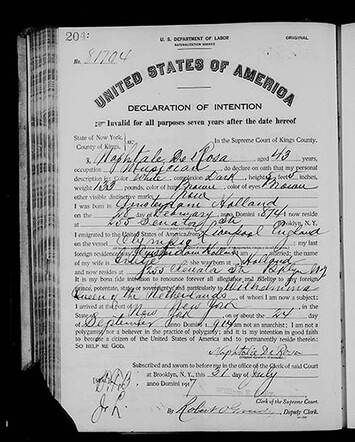 204
U. S. DEPARTMENT OF LABOR
NATURALIZATION SERVICE
ORIGINAL
No. 81704
UNITED STATES OF AMERICA
DECLARATION OF INTENTION
Invalid for all purposes seven years after the date hereof
State of New York,
County of Kings, In the Supreme Court of Kings County.
I, Naphtale De Rosa aged 43 years,
occupation Musician, do declare on oath that my personal
description is: Color White, complexion Dark, height feet 4 inches,
weight 133 pounds, color of hair Brown, color of eyes Brown
other visible distinctive marks
I was born in Amsterdam Holland
on the day of February, anno Domini 1874; I now reside
at Senator St Brooklyn, N.Y.
I emigrated to the United States of America from Liverpool England
on the vessel Olympic; my last
foreign residence was Amsterdam Holland; the name
of my wife is Holland
and now resides at Senator St Bklyn NY
It is my bona fide intention to renounce forever all allegiance and fidelity to any foreign
prince, potentate, state or sovereignty, and particularly to Wilhelmina
Queen of the Netherlands, of whom I am now a subject; I
arrived at the port of New York, in the
State of New York on or about the 24 day
of September, anno Domini 1914; I am not an anarchist; I am not a
polygamist nor a believer in the practice of polygamy; and it is my intention in good faith
to become a citizen of the United States of America and to permanently reside therein:
SO HELP ME GOD.
Naphtale De Rosa
Subscribed and sworn to before me in the office of the Clerk of said Court
at Brooklyn, N.Y., this 21 day of July
anno Domini 19
Clerk of the Supreme Court.
By Robert, Deputy Clerk.